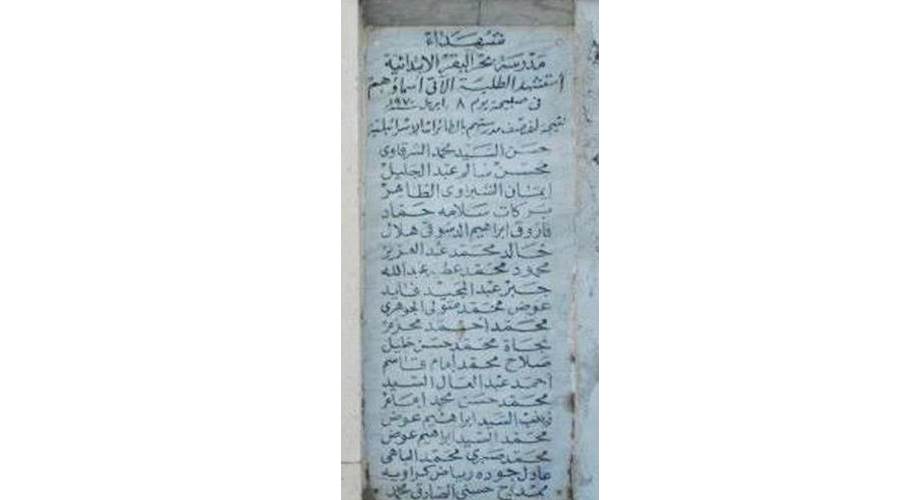 شهداء
مدرسة بحر البقر الابتدائية
استشهد الطلبة الآتى أسماؤهم
فى صبيحة يوم ٨ ابريل ١٩٧٠
نتيجة لقصف مدرستهم بالطائرات الاسرائيلية
حسن السيد محمد الشرقاوى
محسن سالم عبد الجليل
ايمان الشبراوى الطاهر
بركات سلامه حماد
فاروق ابراهيم الدسوقى هلال
خالد محمد عبد العزيز
محمود محمد عطيه عبدالله
جبر عبد المجيد فايد
عوض محمد متولى الجوهرى
محمد أحمد محرم
نجاة محمد حسن خليل
صلاح محمد إمام قاسم
أحمد عبد العال السيد
محمد حسن محمد إمام
زينب السيد ابراهيم عوض
محمد السيد ابراهيم عوض
محمد صبرى محمد الباهى
عادل جوده رياض كراويه
ممدوح حسنى الصادق محمد